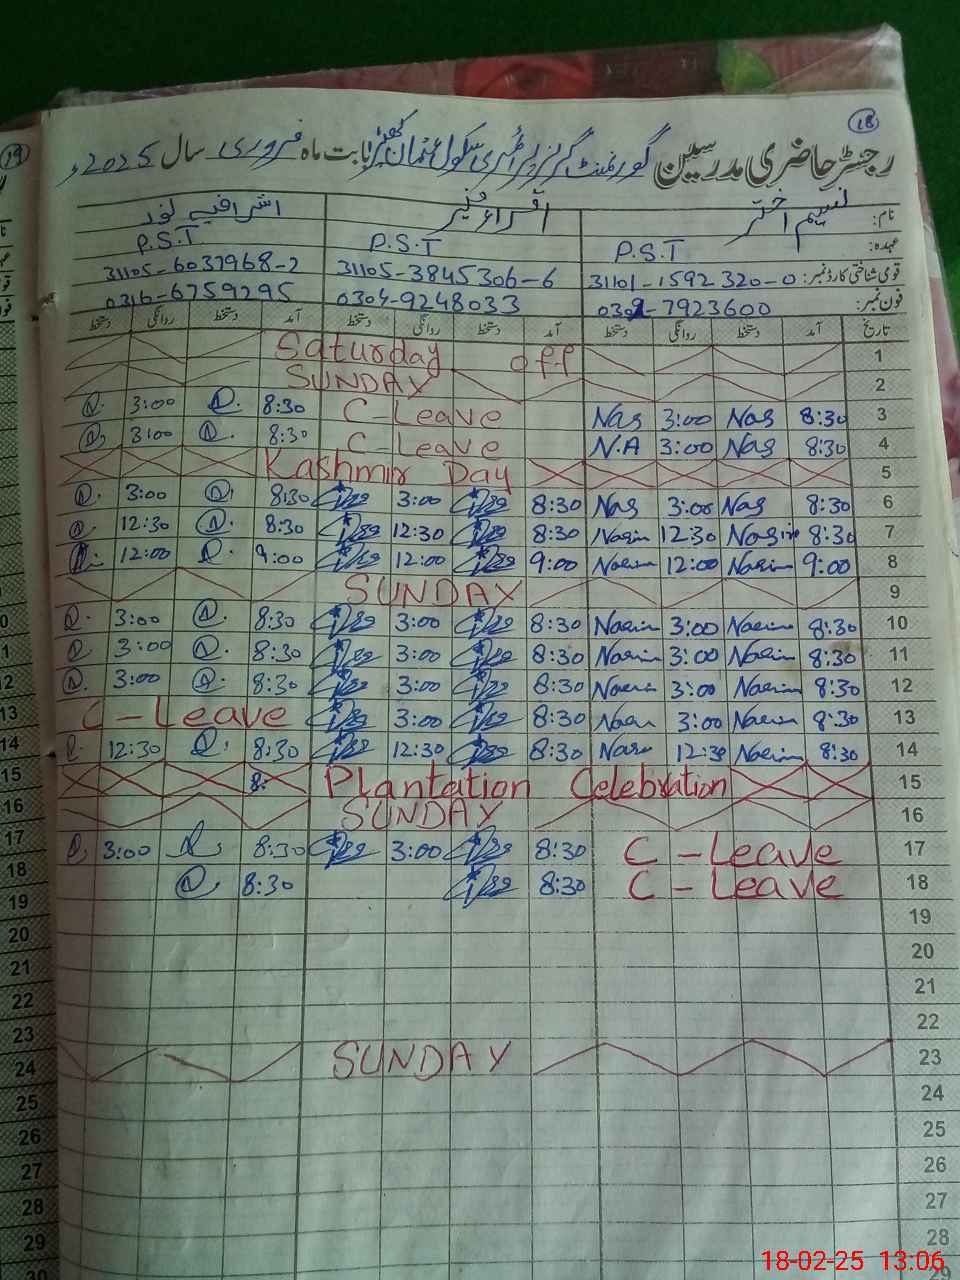 18
رجسٹر حاضری مدرسین گورنمنٹ گرلز پرائمری سکول عثمان کھچی بابت ماہ فروری سال 2025ء
نام: نسیم اختر اقراء اشرافیہ نور
عہدہ: P.S.T P.S.T P.S.T
قومی شناختی کارڈ نمبر: 31101-1592320-0 31105-3845306-6 31105-6037968-2
فون نمبر: 0302-7923600 0304-9248033 0316-6759295
تاریخ آمد دستخط روانگی دستخط آمد دستخط روانگی دستخط آمد دستخط روانگی دستخط
1 Saturday off
2 SUNDAY
3 8:30 Nas 3:00 Nas C-Leave 8:30 3:00
4 8:30 Nas 3:00 N.A C-Leave 8:30 3:00
5 Kashmir Day
6 8:30 Nas 3:00 Nas 8:30 3:00 8:30 3:00
7 8:30 12:30 8:30 12:30 8:30 12:30
8 9:00 Nasim 12:00 Nasim 9:00 12:00 9:00 12:00
9 SUNDAY
10 8:30 Nasim 3:00 Nasim 8:30 3:00 8:30 3:00
11 8:30 Nasim 3:00 Nasim 8:30 3:00 8:30 3:00
12 8:30 Nasim 3:00 Nasim 8:30 3:00 8:30 3:00
13 8:30 Nasim 3:00 8:30 3:00 C-Leave
14 8:30 Nasim 12:30 8:30 12:30 8:30 12:30
15 Plantation Celebration 8:
16 SUNDAY
17 C-Leave 8:30 3:00 8:30 3:00
18 C-Leave 8:30 8:30
19
20
21
22
23 SUNDAY
24
25
26
27
28
29
19
10
11
12
13
14
15
16
17
18
19
20
21
22
23
24
25
26
27
28
29
30
18-02-25 13:06